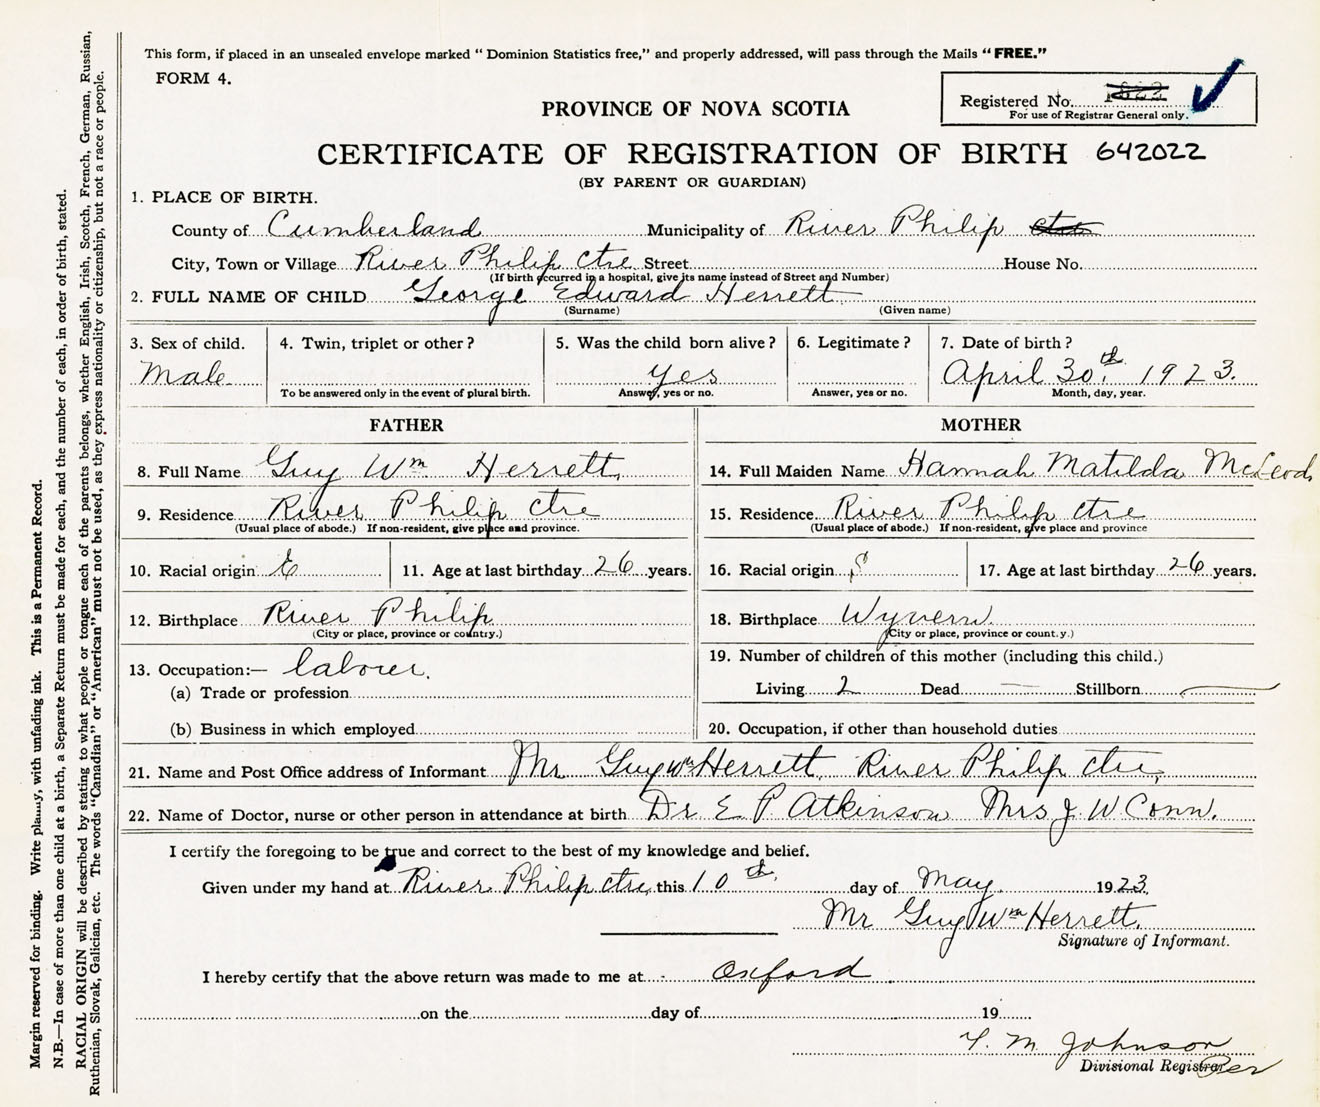 This form, if placed in an unsealed envelope marked "Dominion Statistics free," and properly addressed, will pass through the Mails "FREE."
FORM 4.
Registered No.
For use of Registrar General only.
PROVINCE OF NOVA SCOTIA
CERTIFICATE OF REGISTRATION OF BIRTH 642022
(BY PARENT OR GUARDIAN)
1. PLACE OF BIRTH.
County of Cumberland Municipality of River Philip
City, Town or Village River Philip Ctre Street House No.
(If birth occurred in a hospital, give its name instead of Street and Number)
2. FULL NAME OF CHILD George Edward Herrett
(Surname) (Given name)
3. Sex of child. 4. Twin, triplet or other? 5. Was the child born alive? 6. Legitimate? 7. Date of birth?
Male yes April 30th. 1923.
To be answered only in the event of plural birth. Answer, yes or no. Answer, yes or no. Month, day, year.
FATHER MOTHER
8. Full Name Guy Wm Herrett, 14. Full Maiden Name Hannah Matilda McLeod,
9. Residence River Philip Ctre 15. Residence River Philip Ctre
(Usual place of abode.) If non-resident, give place and province. (Usual place of abode.) If non-resident, give place and province
10. Racial origin E 11. Age at last birthday 26 years. 16. Racial origin S 17. Age at last birthday 26 years.
12. Birthplace River Philip 18. Birthplace Wyvern.
(City or place, province or country.) (City or place, province or country.)
13. Occupation:— laborer. 19. Number of children of this mother (including this child.)
(a) Trade or profession Living 2 Dead — Stillborn —
(b) Business in which employed 20. Occupation, if other than household duties
21. Name and Post Office address of Informant Mr Guy Wm Herrett, River Philip Ctre,
22. Name of Doctor, nurse or other person in attendance at birth Dr E P Atkinson Mrs J. W Conn.
I certify the foregoing to be true and correct to the best of my knowledge and belief.
Given under my hand at River Philip Ctre, this 10th. day of May. 1923.
Mr Guy Wm Herrett.
Signature of Informant.
I hereby certify that the above return was made to me at Oxford
on the day of 19
M Johnson
Divisional Registrar Per
Margin reserved for binding. Write plainly, with unfading ink. This is a Permanent Record.
N.B.—In case of more than one child at a birth, a Separate Return must be made for each, and the number of each, in order of birth, stated.
RACIAL ORIGIN will be described by stating to what people or tongue each of the parents belongs, whether English, Irish, Scotch, French, German, Russian,
Ruthenian, Slovak, Galician, etc. The words "Canadian" or "American" must not be used, as they express nationality or citizenship, but not a race or people.